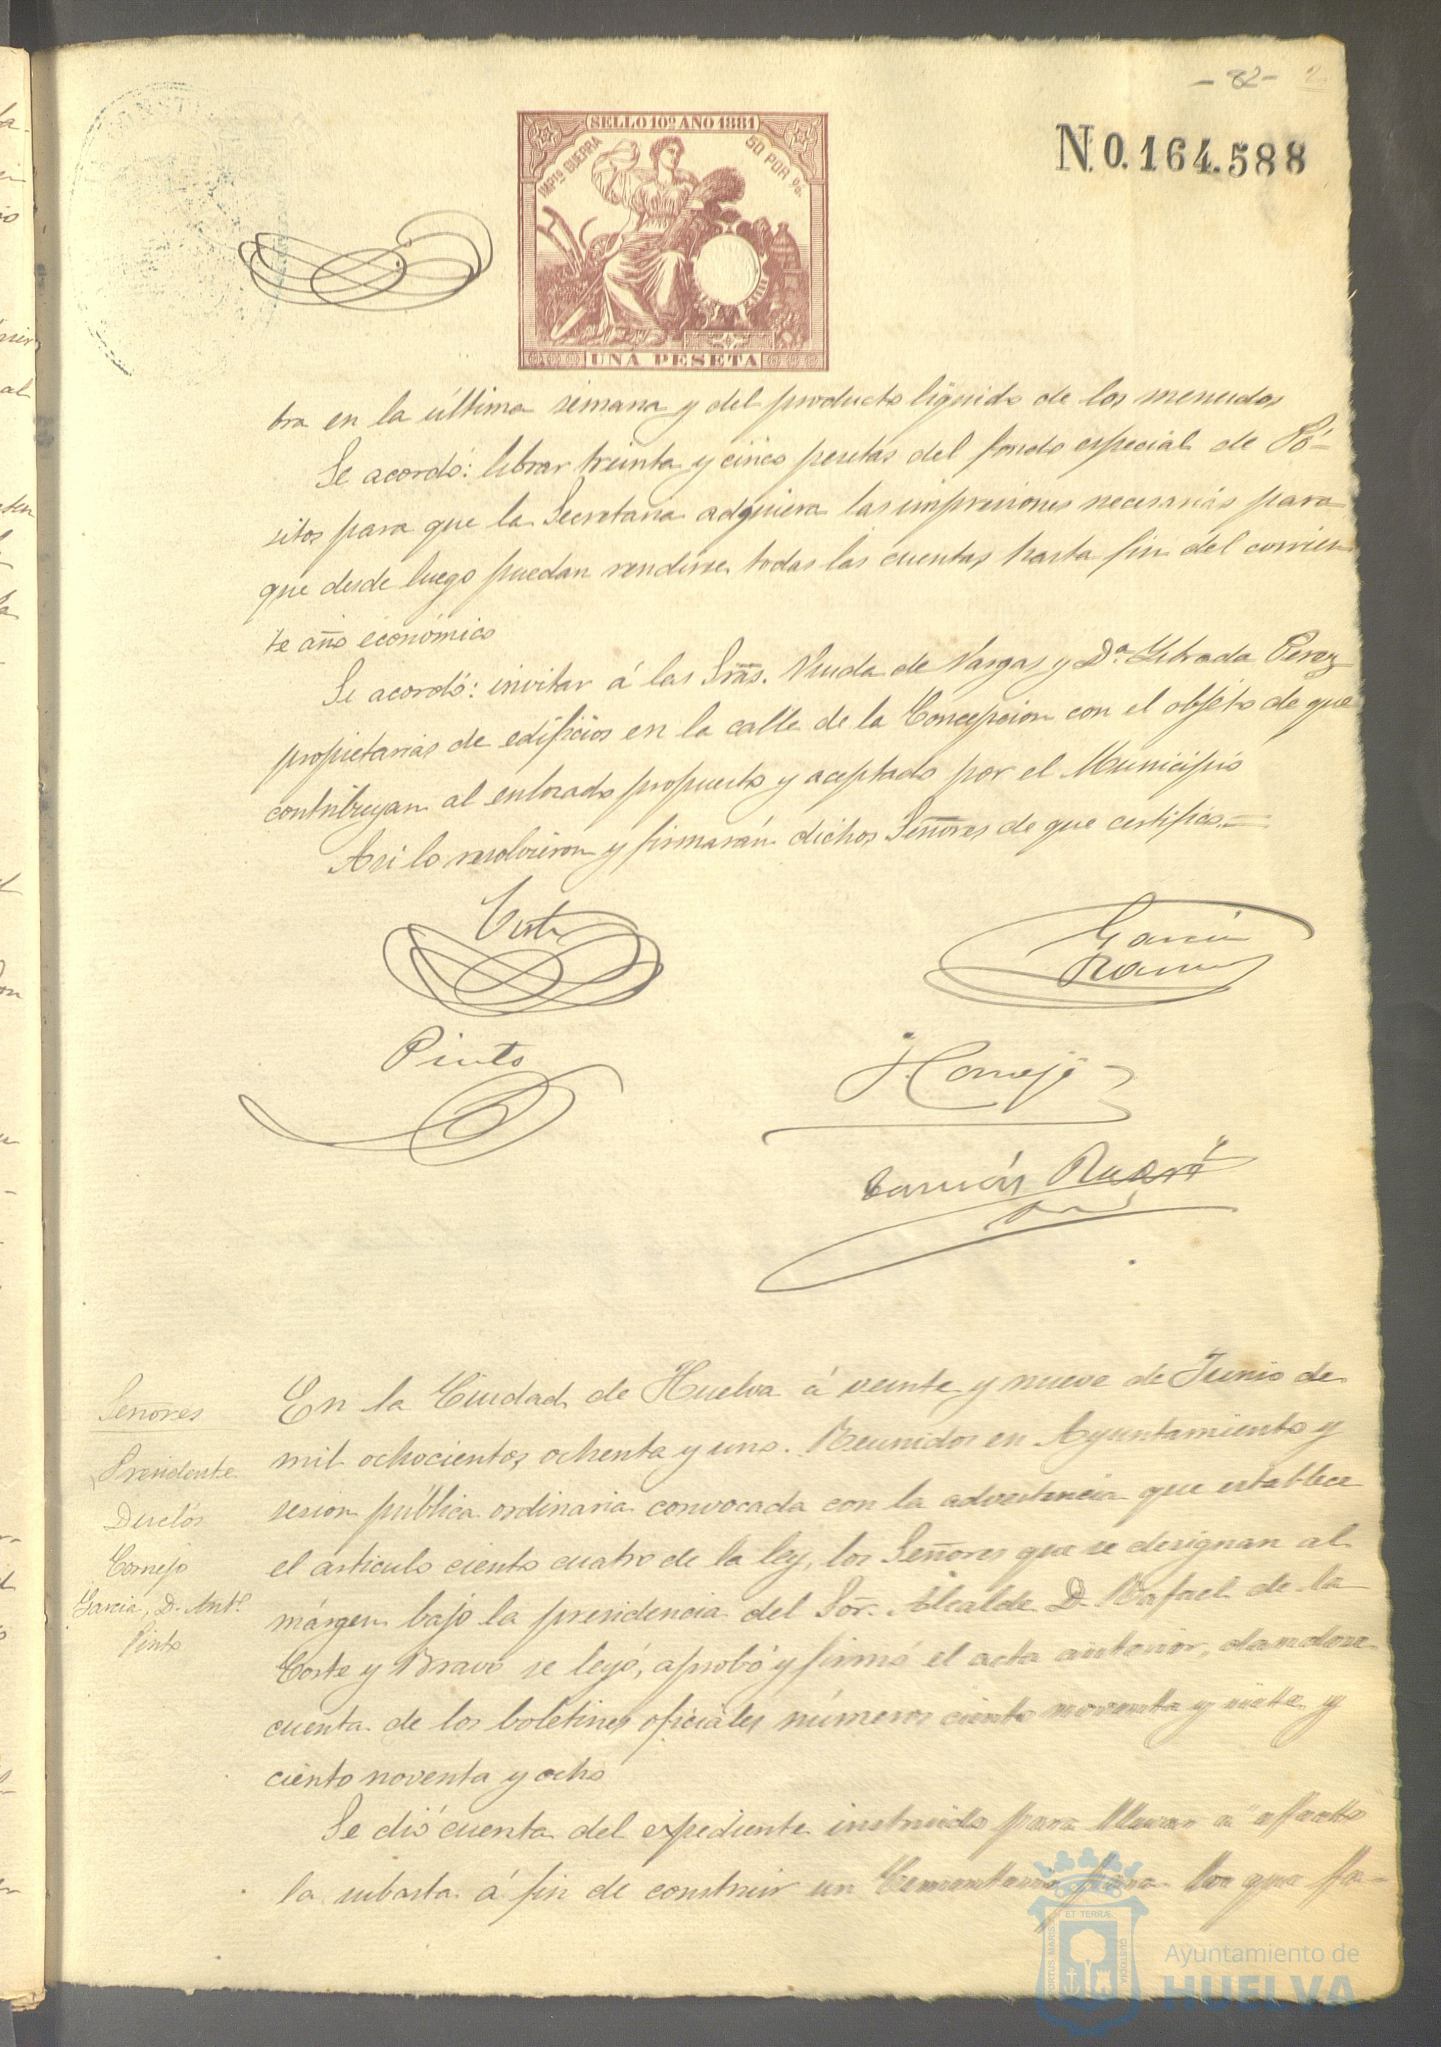 - 82 - 2
SELLO 10º AÑO 1881
IMPTO GUERRA 50 POR %
UNA PESETA
N. 0.164.588
tra en la última semana y del producto líquido de los menudos
Se acordó: librar treinta y cinco pesetas del fondo especial de Pó-
sitos para que la Secretaria adquiera las impresiones necesarias para
que desde luego puedan rendirse todas las cuentas hasta fin del corrien
te año económico
Se acordó: invitar á las Sras. Viuda de Vargas y Dª Librada Perez
propietarias de edificios en la calle de la Concepcion con el objeto de que
contribuyan al enlosado propuesto y aceptado por el Municipio
Asi lo resolvieron y firmarán dichos Señores de que certifico.=
Corte
Garcia
Ramos
Pinto
H. Cornejo
Señores
Presidente
Duclós
Cornejo
Garcia, D. Antº
Pinto
En la Ciudad de Huelva á veinte y nueve de Junio de
mil ochocientos ochenta y uno. Reunidos en Ayuntamiento y
sesion pública ordinaria convocada con la advertencia que establece
el articulo ciento cuatro de la ley, los Señores que se designan al
márgen bajo la presidencia del Sor. Alcalde D. Rafael de la
Corte y Bravo se leyó, aprobó y firmó el acta anterior, dandose
cuenta de los boletines oficiales números ciento noventa y siete y
ciento noventa y ocho
Se dió cuenta del expediente instruido para llevar a efecto
la subasta á fin de construir un Cementerio para los que fa-
PORTUS MARIS ET TERRÆ CUSTODIA
Ayuntamiento de
HUELVA